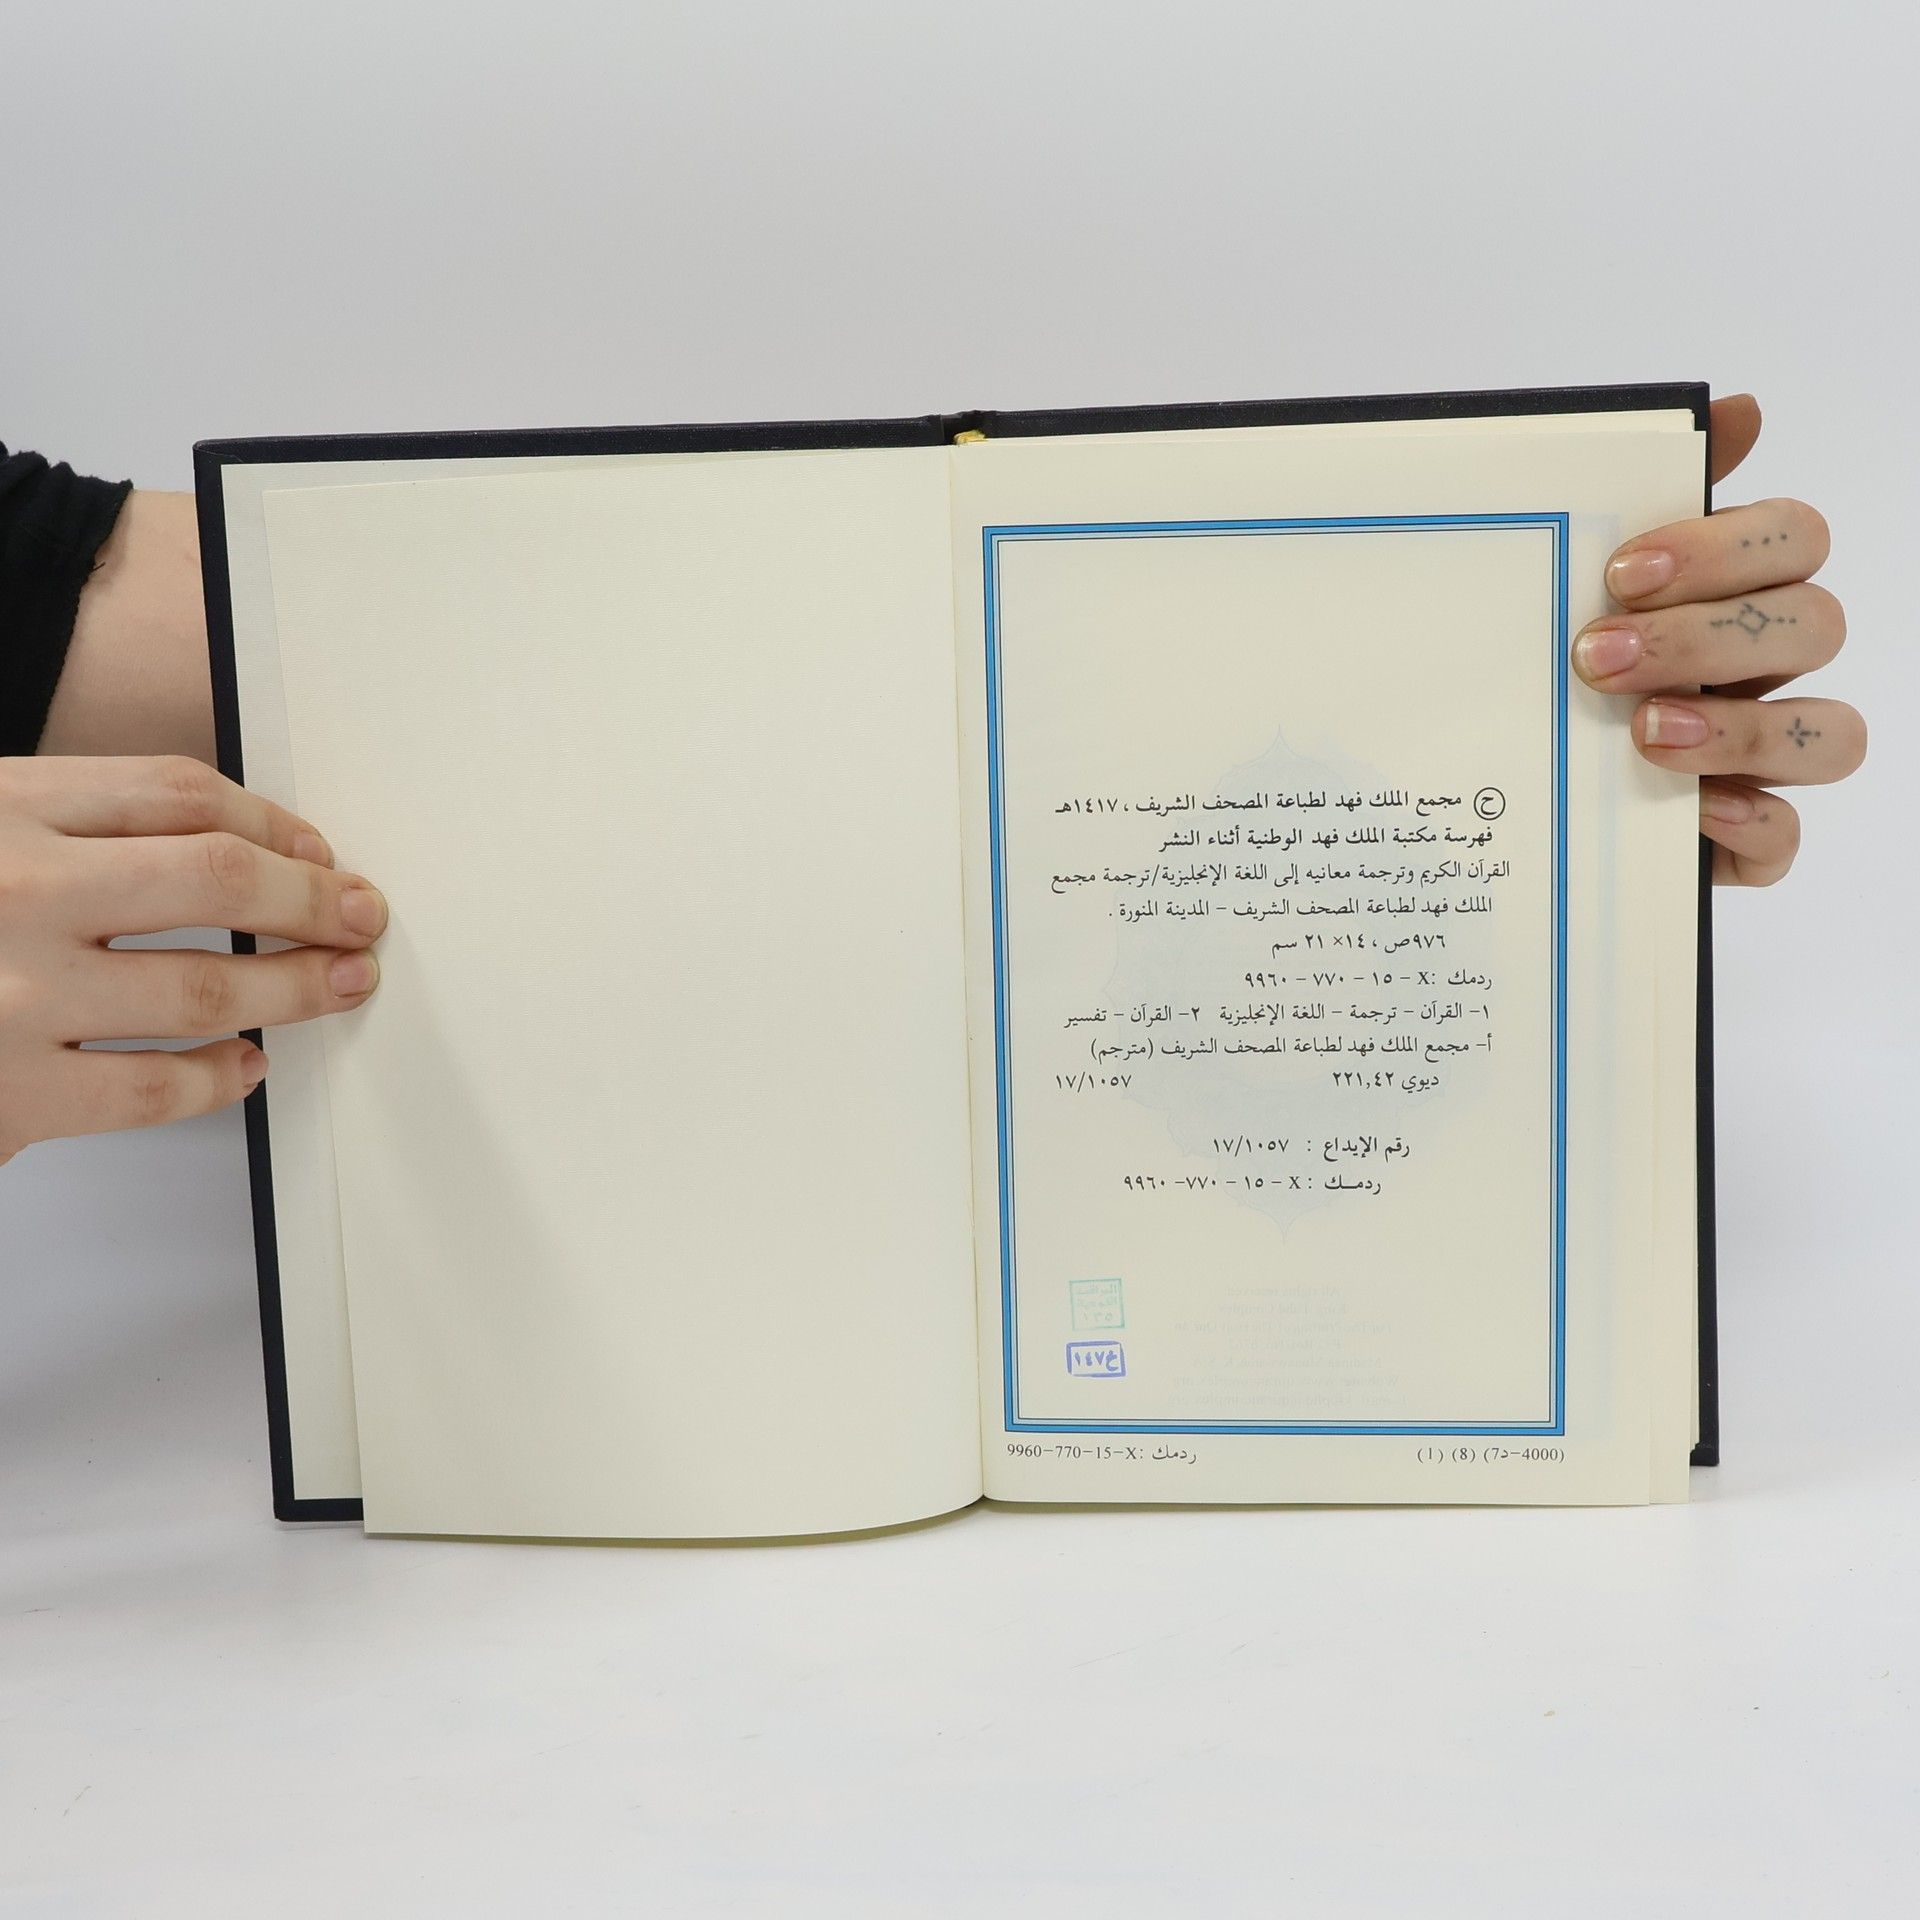 ح مجمع الملك فهد لطباعة المصحف الشريف ، ١٤١٧هـ
فهرسة مكتبة الملك فهد الوطنية أثناء النشر
القرآن الكريم وترجمة معانيه إلى اللغة الإنجليزية/ترجمة مجمع
الملك فهد لطباعة المصحف الشريف – المدينة المنورة .
٩٧٦ص ، ١٤× ٢١ سم
ردمك :X – ١٥ – ٧٧٠ – ٩٩٦٠
١– القرآن – ترجمة – اللغة الإنجليزية ٢– القرآن – تفسير
أ– مجمع الملك فهد لطباعة المصحف الشريف (مترجم)
ديوي ٢٢١,٤٢ ١٧/١٠٥٧
رقم الإيداع : ١٧/١٠٥٧
ردمـــك : X – ١٥ – ٧٧٠– ٩٩٦٠
١٣٥
١٤٧خ
(4000–د7) (8) (1) ردمك :9960–770–15–X